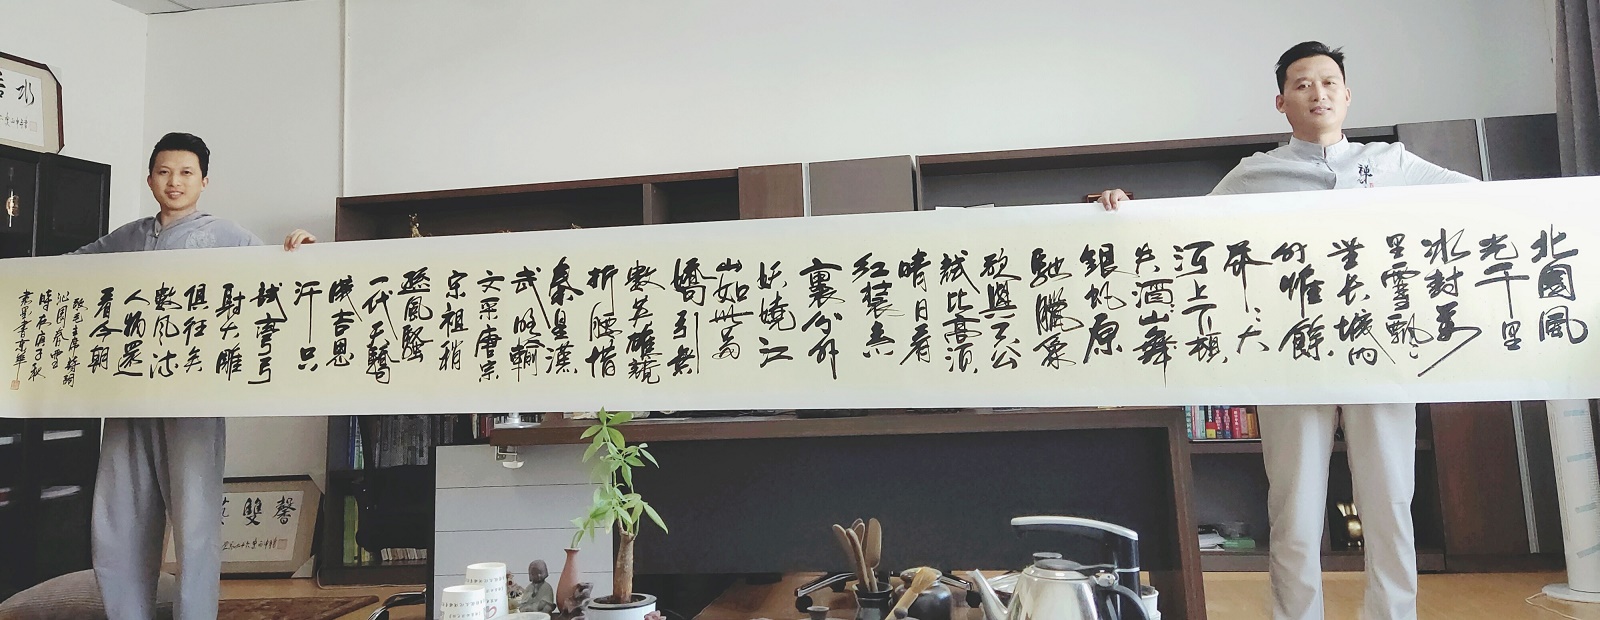 北國風
光千里
冰封萬
里雪飄
望长城内
外惟餘
莽々大
河上下頓
失滔山舞
銀蛇原
馳臘象
欲與天公
試比高須
晴日看
红裝素
裹分外
妖嬈江
山如此多
嬌引無
數英雄競
折腰惜
秦皇漢
武略輸
文采唐宗
宋祖稍
遜風騷
一代天驕
成吉思
汗只
識彎弓
射大雕
俱往矣
數風流
人物還
看今朝
毛主席诗詞
沁園春雪
時在庚子秋
水
馨雙
禅